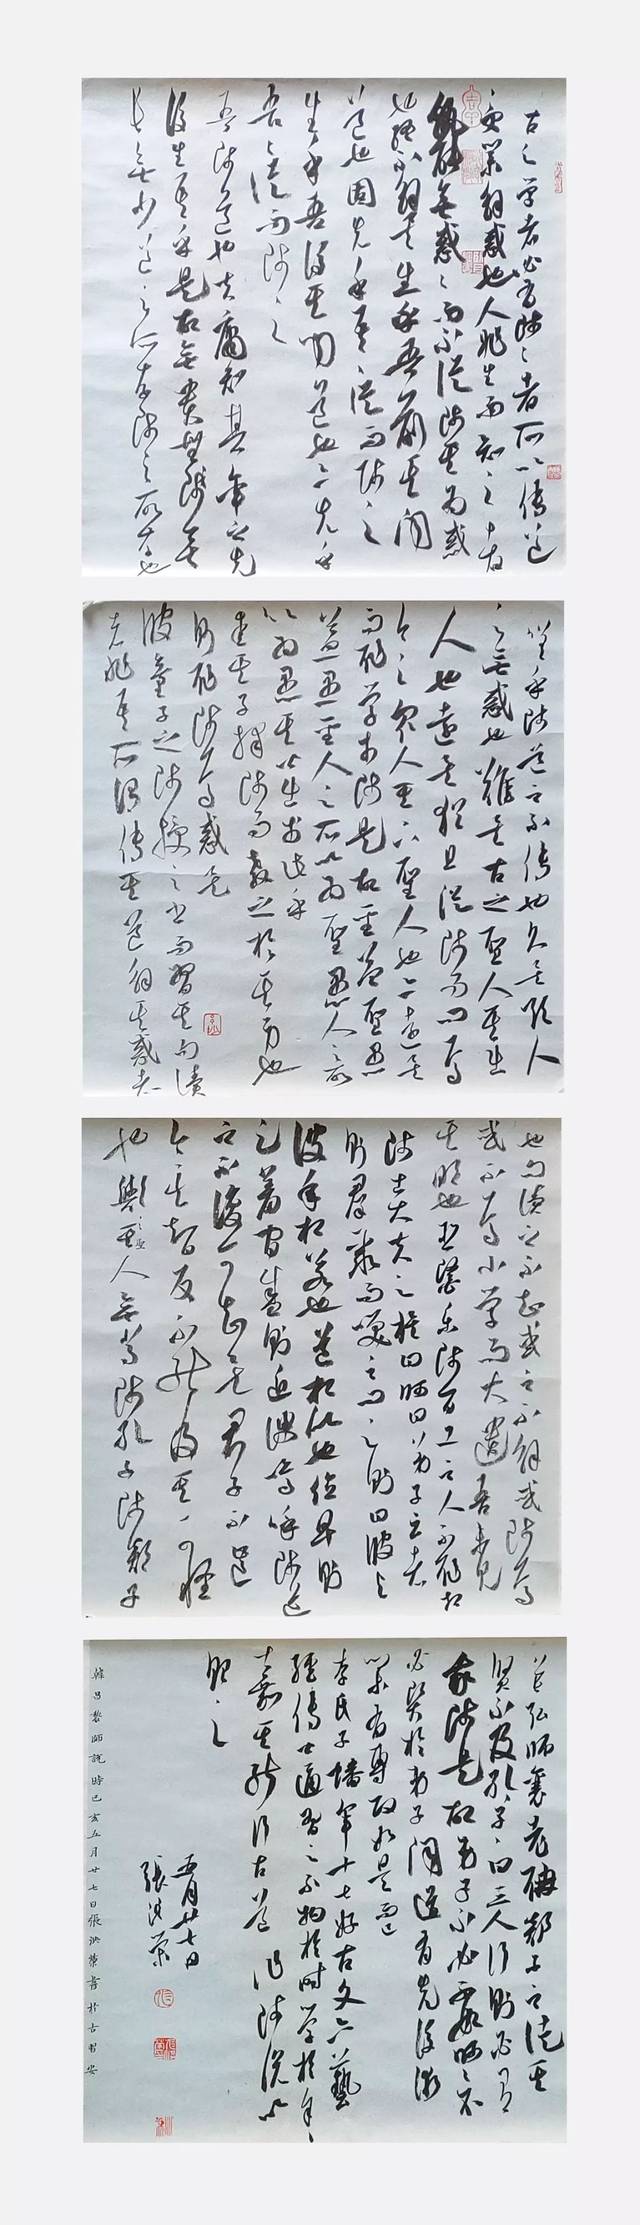 古之学者必有師〻者所以傳道
受業解惑也人非生而知之者
孰能無惑〻而不從師其為惑
也終不解矣生乎吾前其聞
道也固先乎吾〻從而師之
生乎吾後其聞道也亦先乎
吾〻從而師之
吾師道也夫庸知其年之先
後生吾乎是故無貴無賤無
長無少道之所存師之所存也
嗟乎師道之不傳也久矣欲人
之無惑也難矣古之聖人其出
人也遠矣猶且從師而問焉
今之眾人其下聖人也亦遠矣
而恥學於師是故聖益聖愚
益愚聖人之所以為聖愚人之所
以為愚其皆出於此乎
愛其子擇師而教之於其身也
則恥師焉惑矣
彼童子之師授之書而習其句讀
者非吾所謂傳其道解其惑者
也句讀之不知惑之不解或師焉
或不焉小学而大遺吾未見
其明也巫醫樂師百工之人不恥相
師士大夫之族曰師曰弟子云者
則群聚而笑之問之則曰彼與
彼年相若也道相似也位卑則
足羞官盛則近諛嗚呼師道
之不復可知矣君子不齒
今其智反不能及其可怪
也歟聖人無常師孔子師郯子
萇弘師襄老聃郯子之徒其
賢不及孔子〻曰三人行則必有
我師是故弟子不必不如師〻不
必賢於弟子聞道有先後術
業有專攻如是而已
李氏子蟠年十七好古文六藝
經傳皆通習之不拘於時學於余〻
嘉其能行古道作師說以
貽之
五月廿七日
張洪榮
韓昌黎師說時己亥五月廿七日張洪榮書於古習安